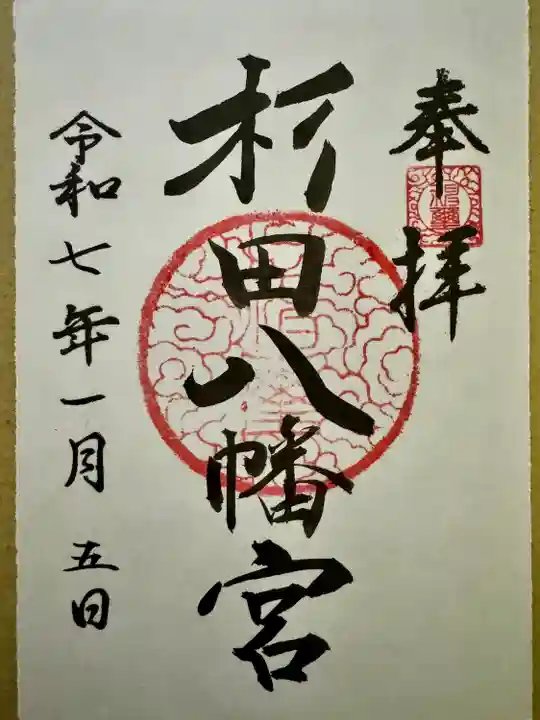 奉拝
杉田八幡宮
令和七年一月五日